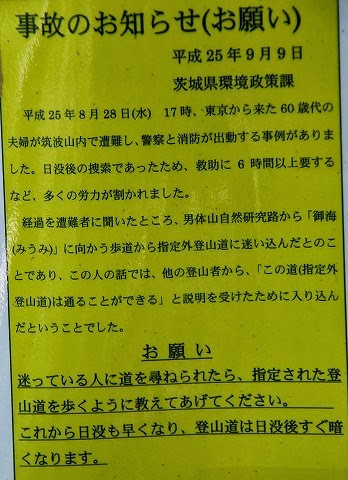 事故のお知らせ(お願い)
平成25年9月9日
茨城県環境政策課
平成25年8月28日(水) 17時、東京から来た60歳代の
夫婦が筑波山内で遭難し、警察と消防が出動する事例がありま
した。日没後の捜索であったため、救助に6時間以上要する
など、多くの労力が割かれました。
経過を遭難者に聞いたところ、男体山自然研究路から「御海
(みうみ)」に向かう歩道から指定外登山道に迷い込んだとのこ
とであり、この人の話では、他の登山者から、「この道(指定外
登山道)は通ることができる」と説明を受けたために入り込ん
だということでした。
お願い
迷っている人に道を尋ねられたら、指定された登
山道を歩くように教えてあげてください。
これから日没も早くなり、登山道は日没後すぐ暗
くなります。